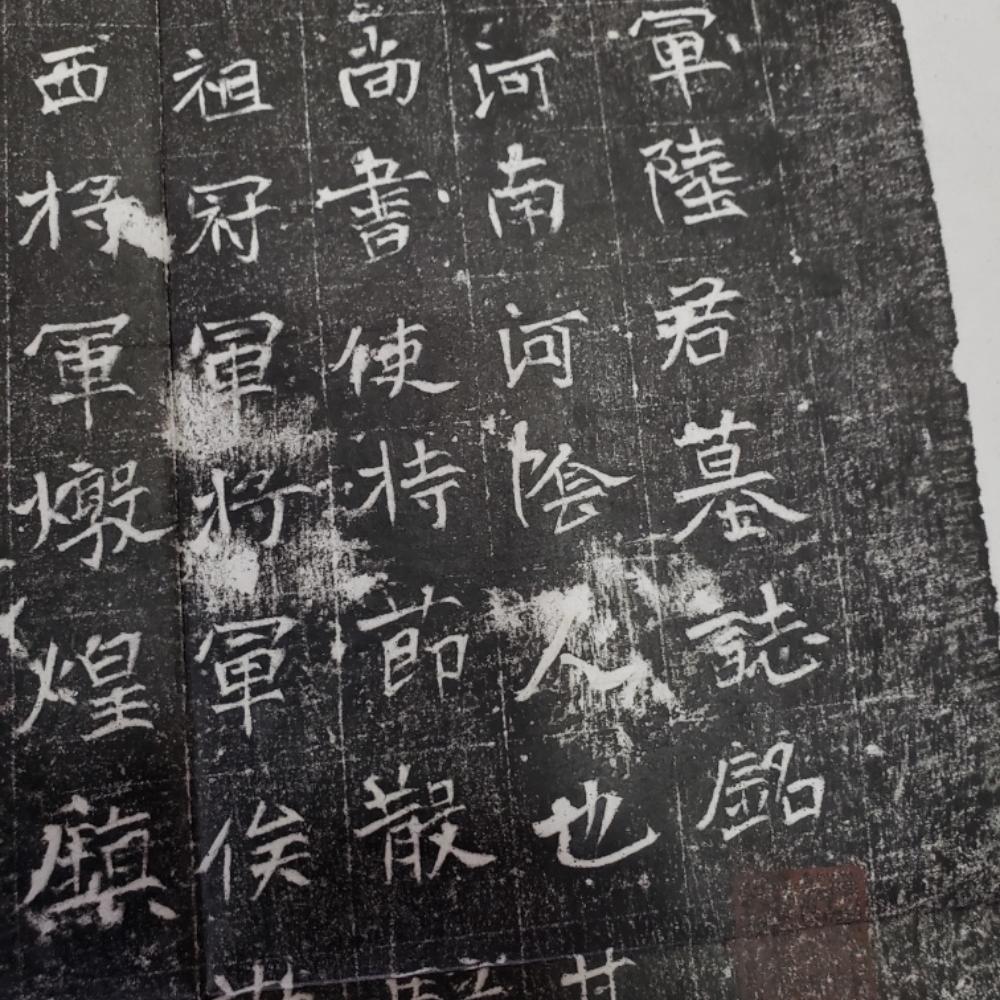 軍陸君墓誌銘
河南河陰人也
尚書使持節散
祖冠軍将軍俟
西将軍燉煌鎮